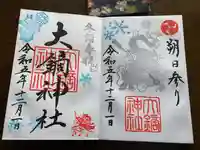 朔日参り
令和五年十二月一日
大鏑神社
大鏑神社
大鏑神社
令和五年十二月一日